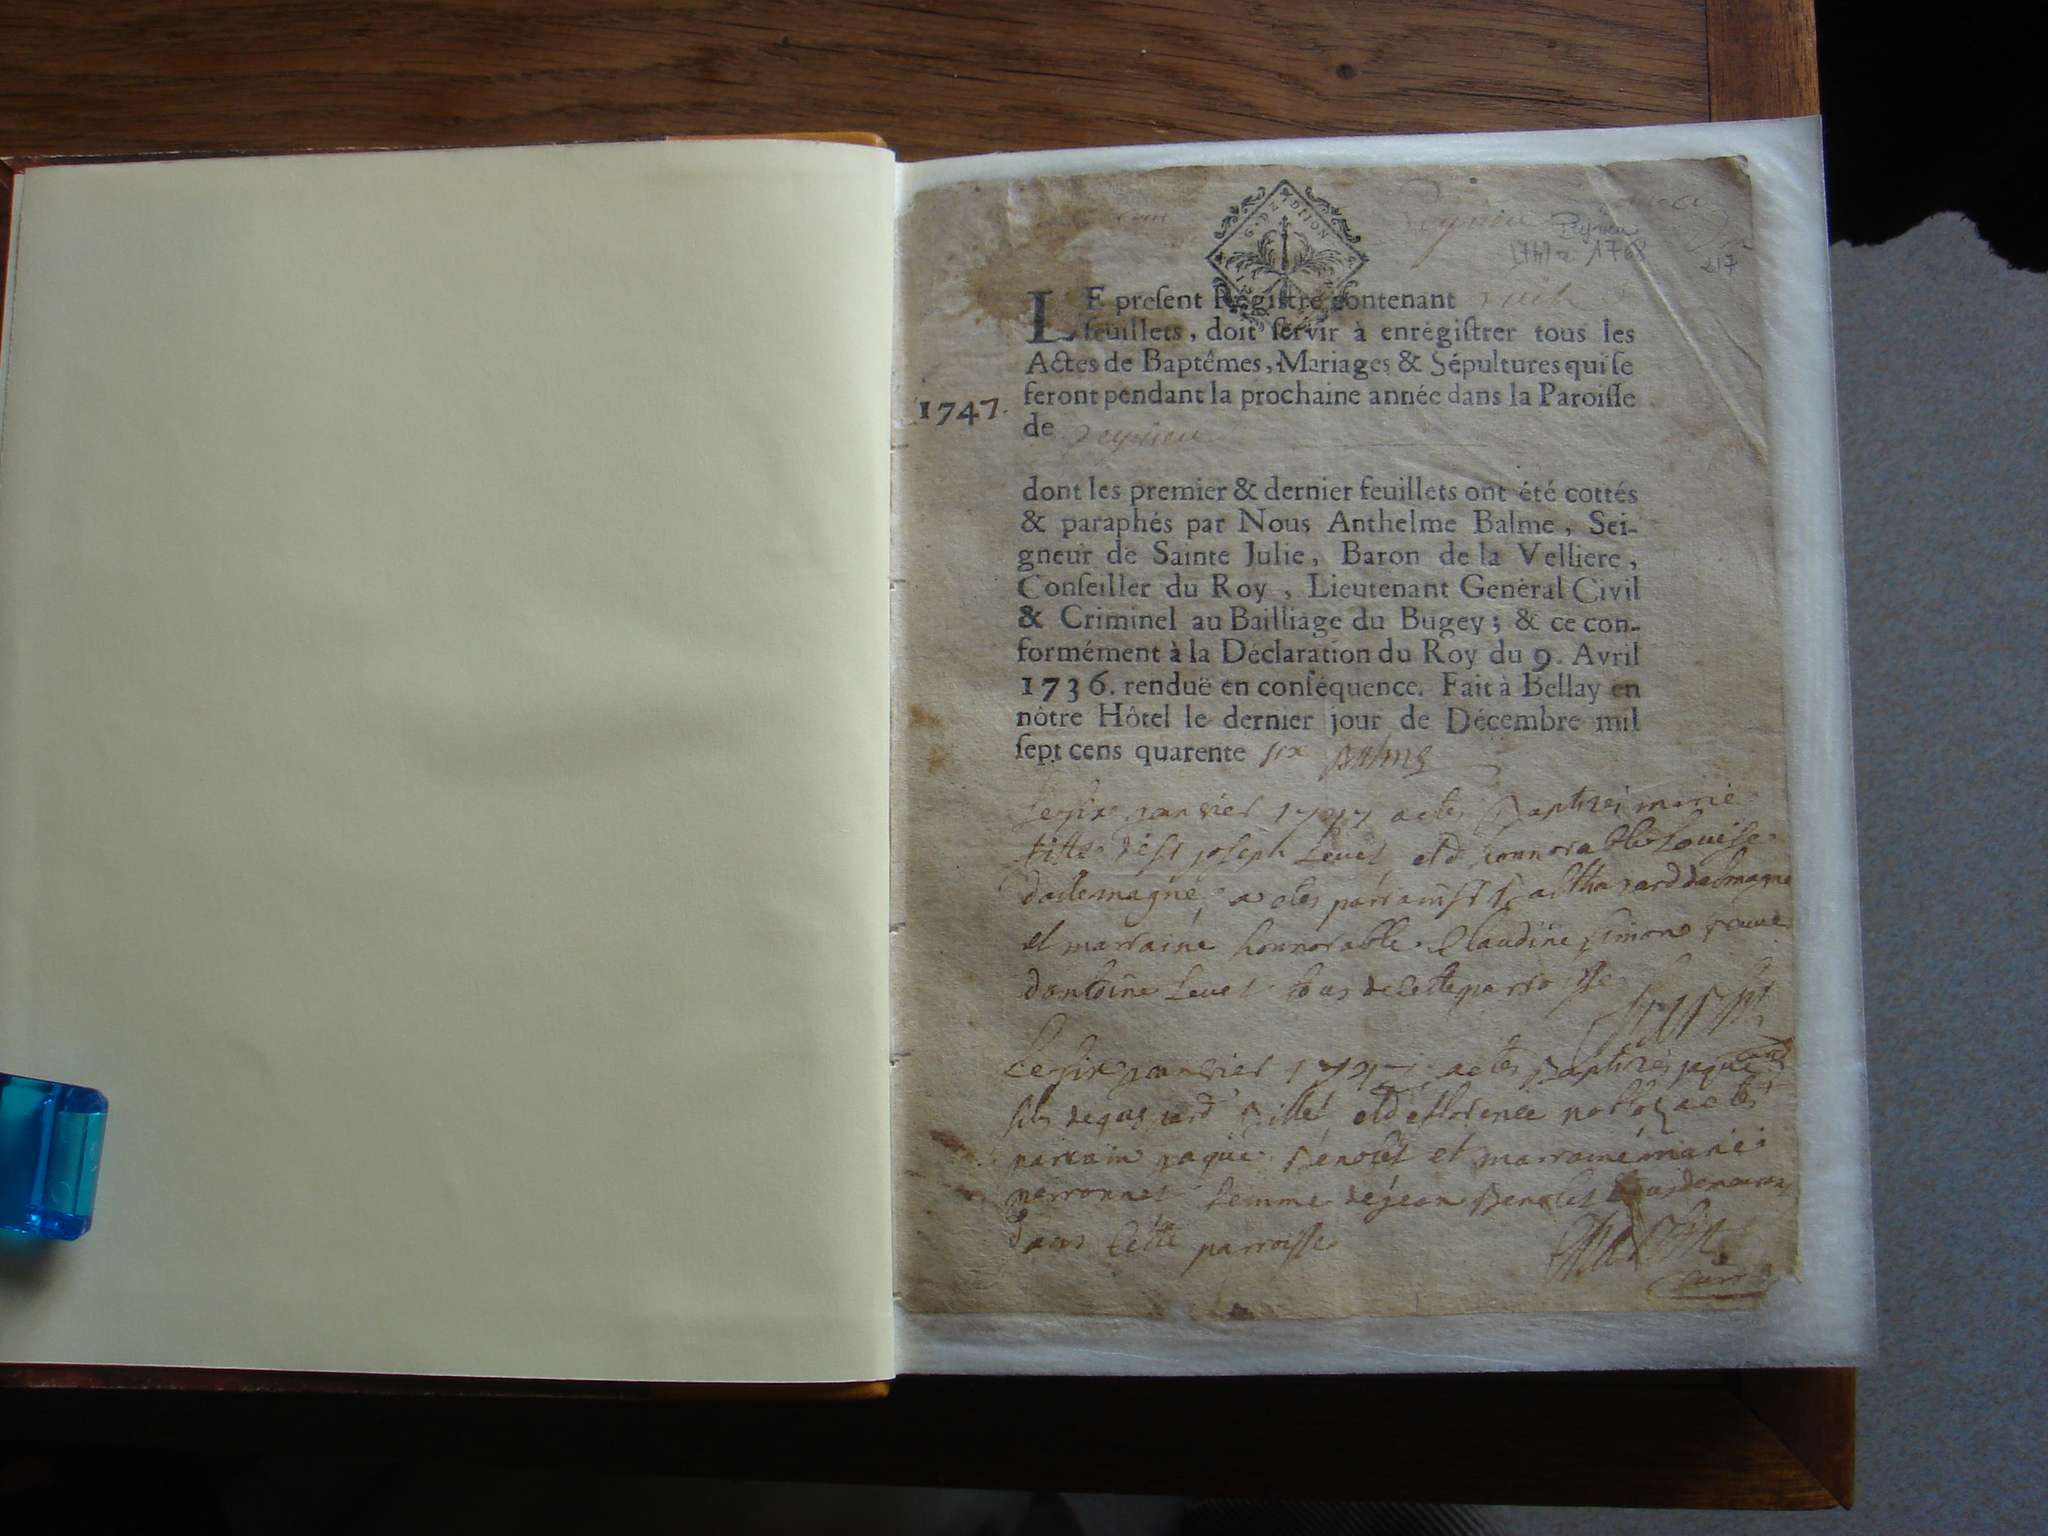 G. DE DIJON
Peyrieu
Peyrieu
1747 a 1768
217
LE present Régistre contenant huit
feuillets, doit servir à enrégistrer tous les
Actes de Baptêmes, Mariages & Sépultures qui se
feront pendant la prochaine année dans la Paroisse
1747.
de Peyrieu
dont les premier & dernier feuillets ont été cottés
& paraphés par Nous Anthelme Balme, Sei-
gneur de Sainte Julie, Baron de la Velliere,
Conseiller du Roy, Lieutenant Genéral Civil
& Criminel au Bailliage du Bugey; & ce con-
formément à la Déclaration du Roy du 9. Avril
1736. renduë en conséquence. Fait à Bellay en
nôtre Hôtel le dernier jour de Décembre mil
sept cens quarente six Balme
Le six janvier 1747 a etes Baptizei marie
fille joseph Levet et d honnorable Louise
dallemagne a etes parrain
et marraine honnorable Claudine simone veuve
dantoine Levet tous de cette parroisse
Le six janvier 1747 a etes Baptizes
fils de et de florence a etes
parrain et marraine marie
perronnet femme de jean
dans Cette parroisse
curé